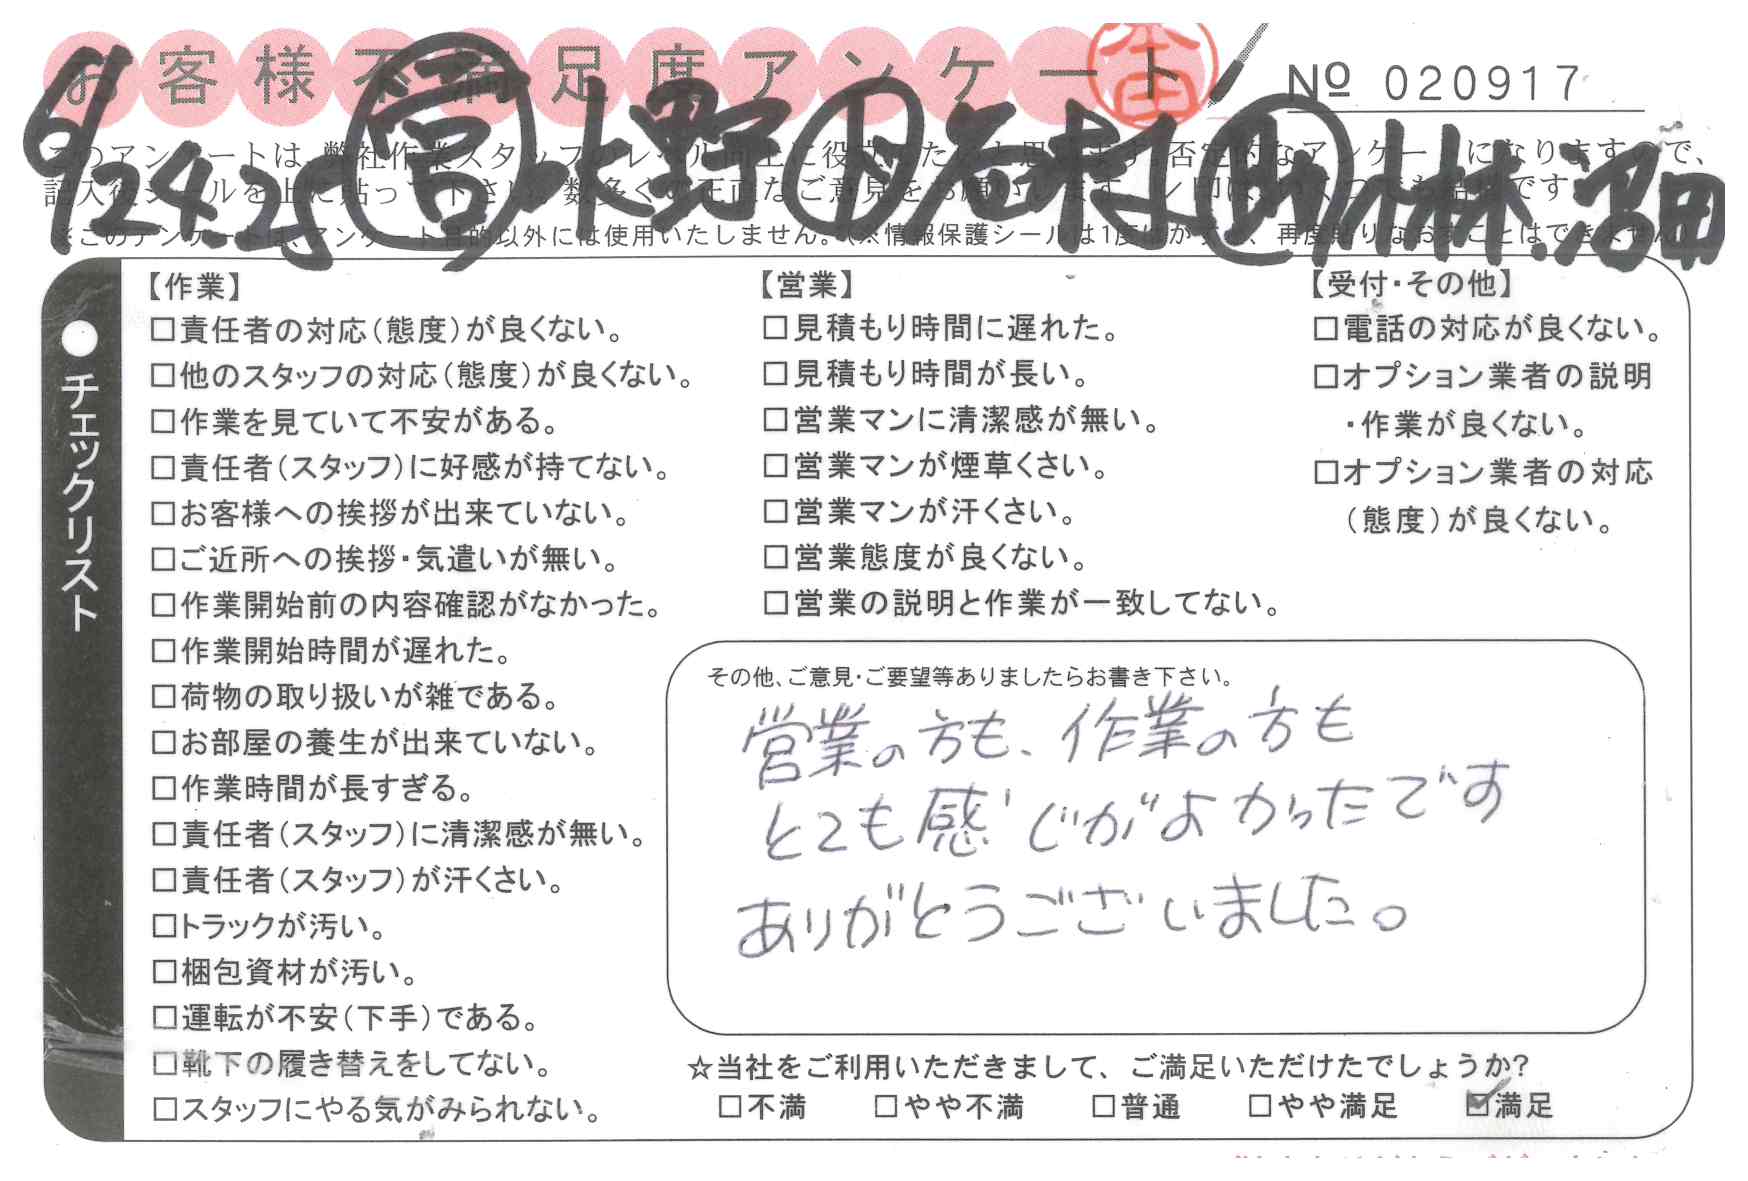 お客様不満足度アンケート
本田
№ 020917
6/24.25 営 水野 作 若林 助 小林.沼田
このアンケートは、弊社作業スタッフのレベル向上に役立 否定的なアンケートになりますので、
記入後シールを上に貼って下さい。数多くの正直なご意見をお願いします。
※このアンケートは、アンケート目的以外には使用いたしません。(※情報保護シールは1度はがすと、再度貼りなおすことはできません)
●チェックリスト
【作業】
□責任者の対応(態度)が良くない。
□他のスタッフの対応(態度)が良くない。
□作業を見ていて不安がある。
□責任者(スタッフ)に好感が持てない。
□お客様への挨拶が出来ていない。
□ご近所への挨拶・気遣いが無い。
□作業開始前の内容確認がなかった。
□作業開始時間が遅れた。
□荷物の取り扱いが雑である。
□お部屋の養生が出来ていない。
□作業時間が長すぎる。
□責任者(スタッフ)に清潔感が無い。
□責任者(スタッフ)が汗くさい。
□トラックが汚い。
□梱包資材が汚い。
□運転が不安(下手)である。
□靴下の履き替えをしてない。
□スタッフにやる気がみられない。
【営業】
□見積もり時間に遅れた。
□見積もり時間が長い。
□営業マンに清潔感が無い。
□営業マンが煙草くさい。
□営業マンが汗くさい。
□営業態度が良くない。
□営業の説明と作業が一致してない。
【受付・その他】
□電話の対応が良くない。
□オプション業者の説明
・作業が良くない。
□オプション業者の対応
(態度)が良くない。
その他、ご意見・ご要望等ありましたらお書き下さい。
営業の方も、作業の方も
とても感じがよかったです
ありがとうございました。
☆当社をご利用いただきまして、ご満足いただけたでしょうか?
□不満 □やや不満 □普通 □やや満足 ☑満足